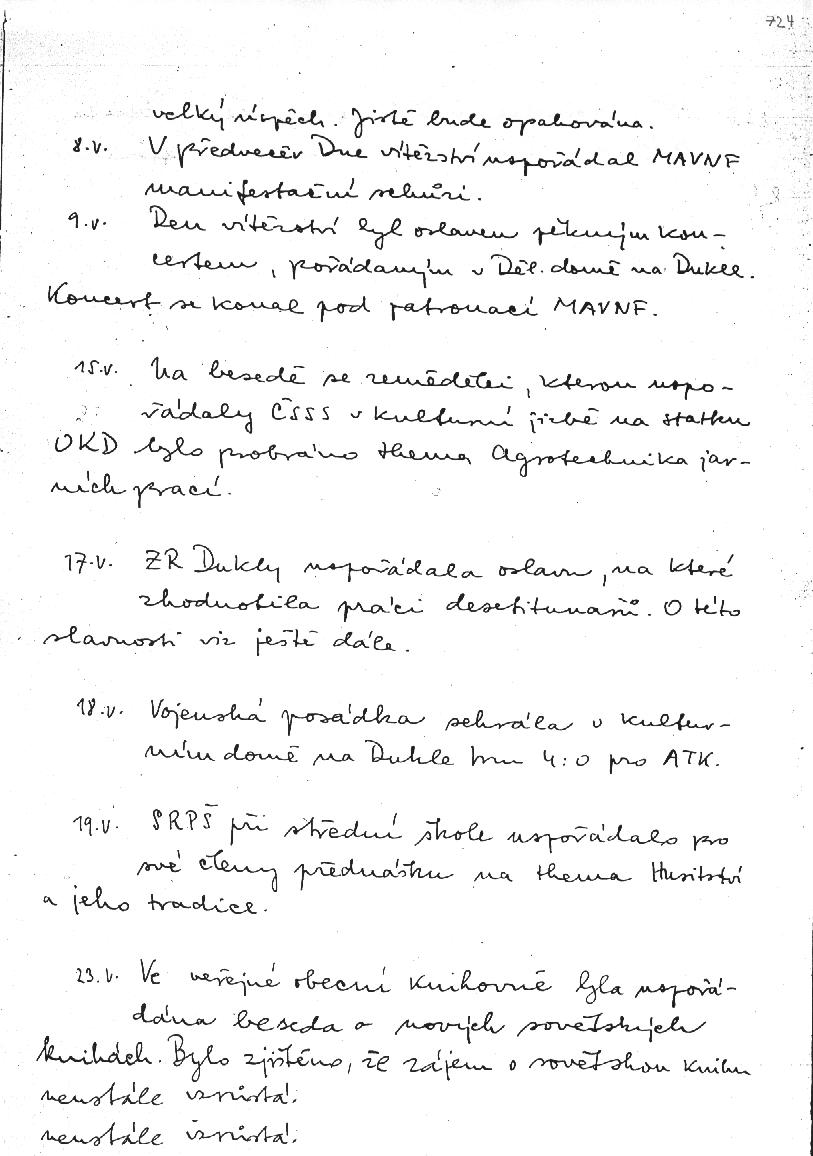 724
velký úspěch. Jistě bude opakována.
8.v. V předvečer Dne vítězství uspořádal MAVNF
manifestační schůzi.
9.v. Den vítězství byl oslaven pěkným kon-
certem, pořádaným v Děl. domě na Dukle.
Koncert se konal pod patronací MAVNF.
15.v. Na besedě se zemědělci, kterou uspo-
řádaly ČSSS v kulturní jizbě na statku
OKD bylo probráno thema Agrotechnika jar-
ních prací.
17.v. ZR Dukly uspořádala oslavu, na které
zhodnotila práci desetitunařů. O této
slavnosti viz ještě dále.
18.v. Vojenská posádka sehrála v kultur-
ním domě na Dukle hru 4:0 pro ATK.
19.v. SRPŠ při střední škole uspořádalo pro
své členy přednášku na thema Husitství
a jeho tradice.
23.v. Ve veřejné obecní knihovně byla uspořá-
dána beseda o nových sovětských
knihách. Bylo zjištěno, že zájem o sovětskou knihu
neustále vzrůstá.
neustále vzrůstá.